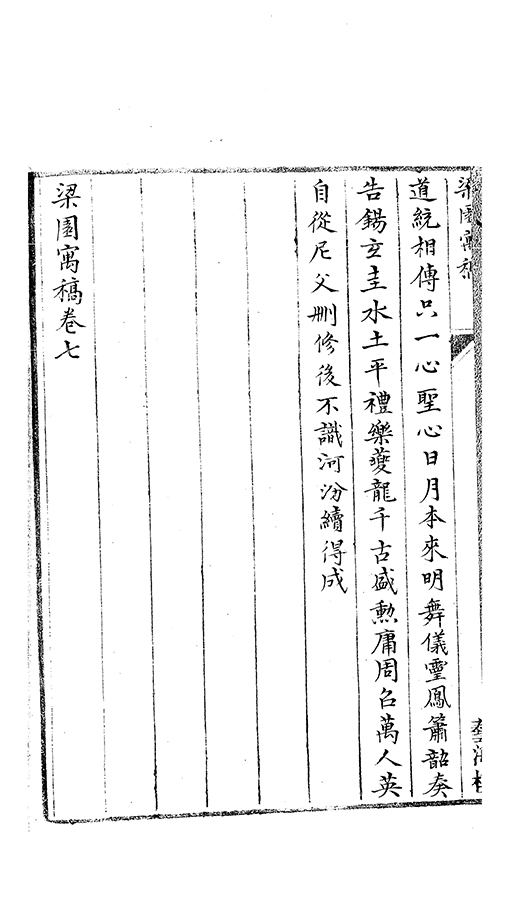 梁園寓稿
道統相傳只一心聖心日月本來明舞儀靈鳳簫韶奏
告錫玄圭水土平禮樂夔龍千古盛勲庸周召萬人英
自從尼父刪修後不識河汾續得成
梁園寓稿卷七